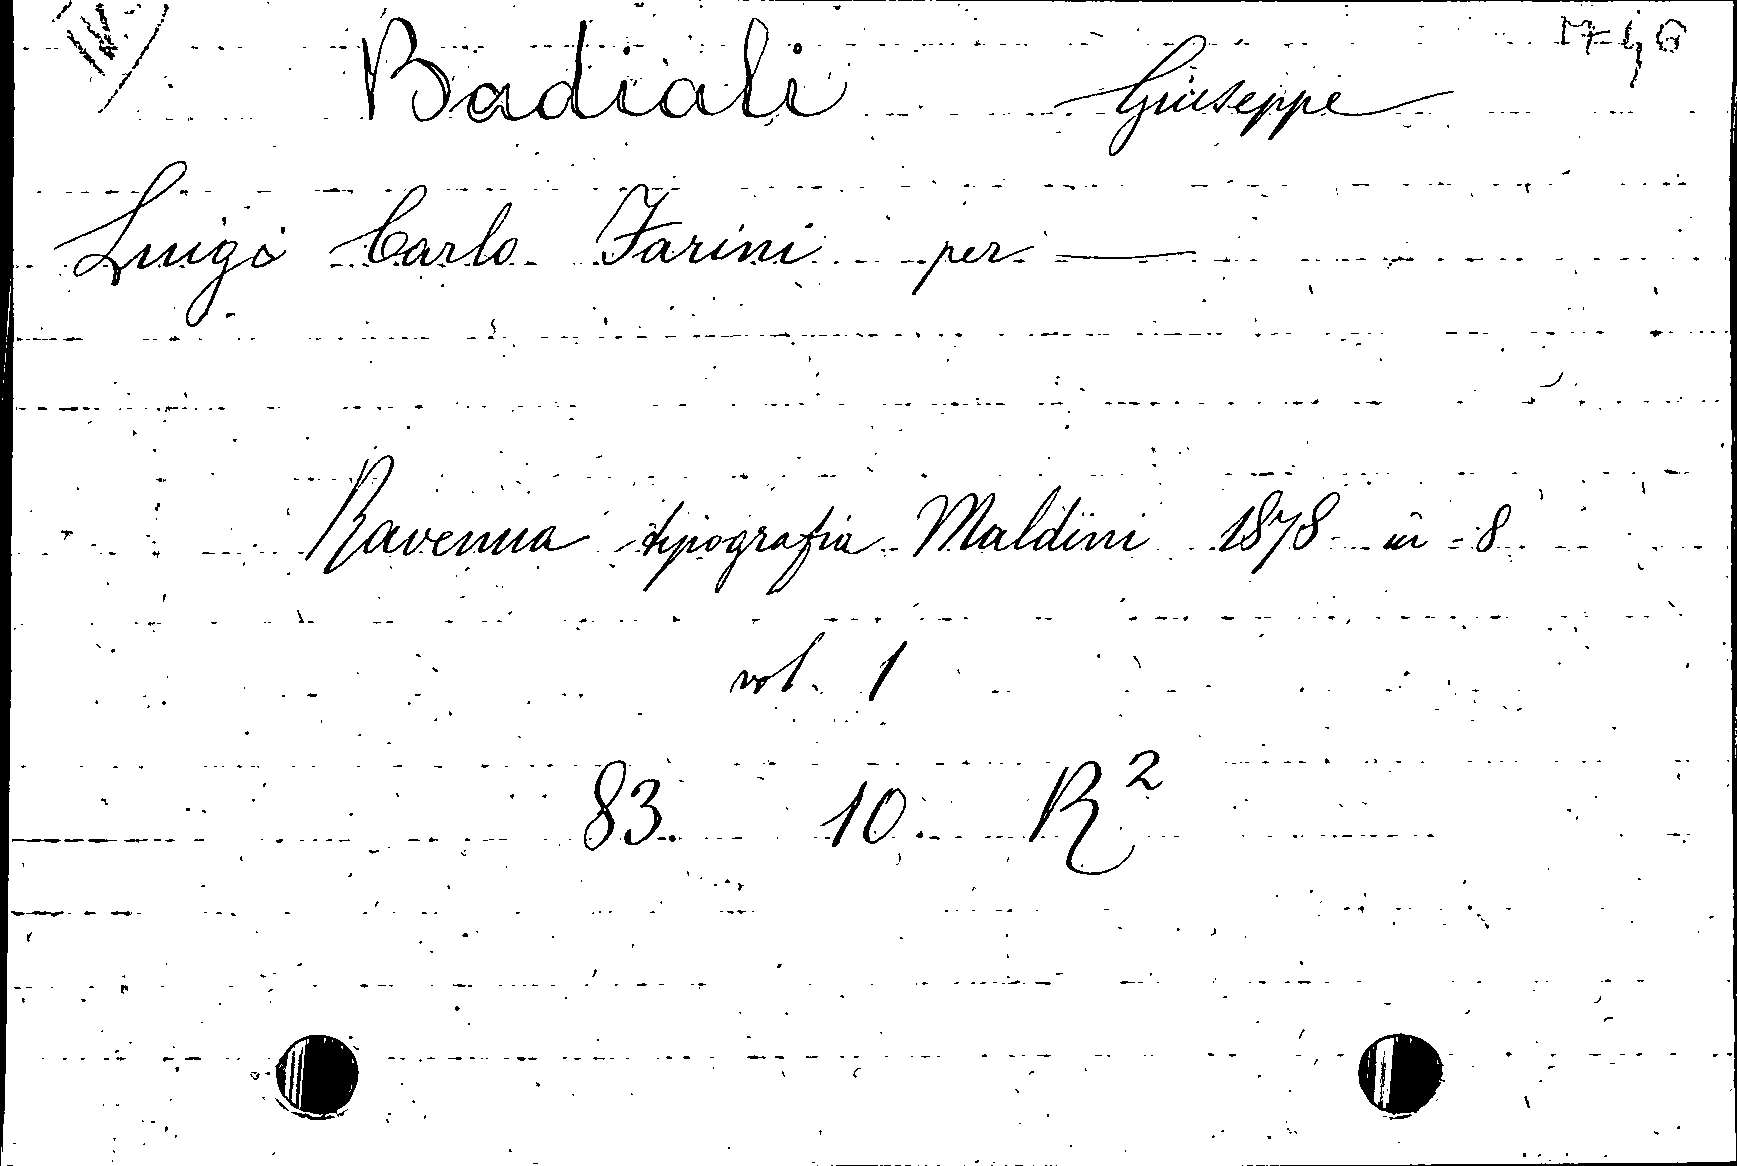 Badiali Giuseppe
Luigi Carlo Farini per —
Ravenna tipografia Maldini 1878 in - 8
vol. 1
83. 10. R²